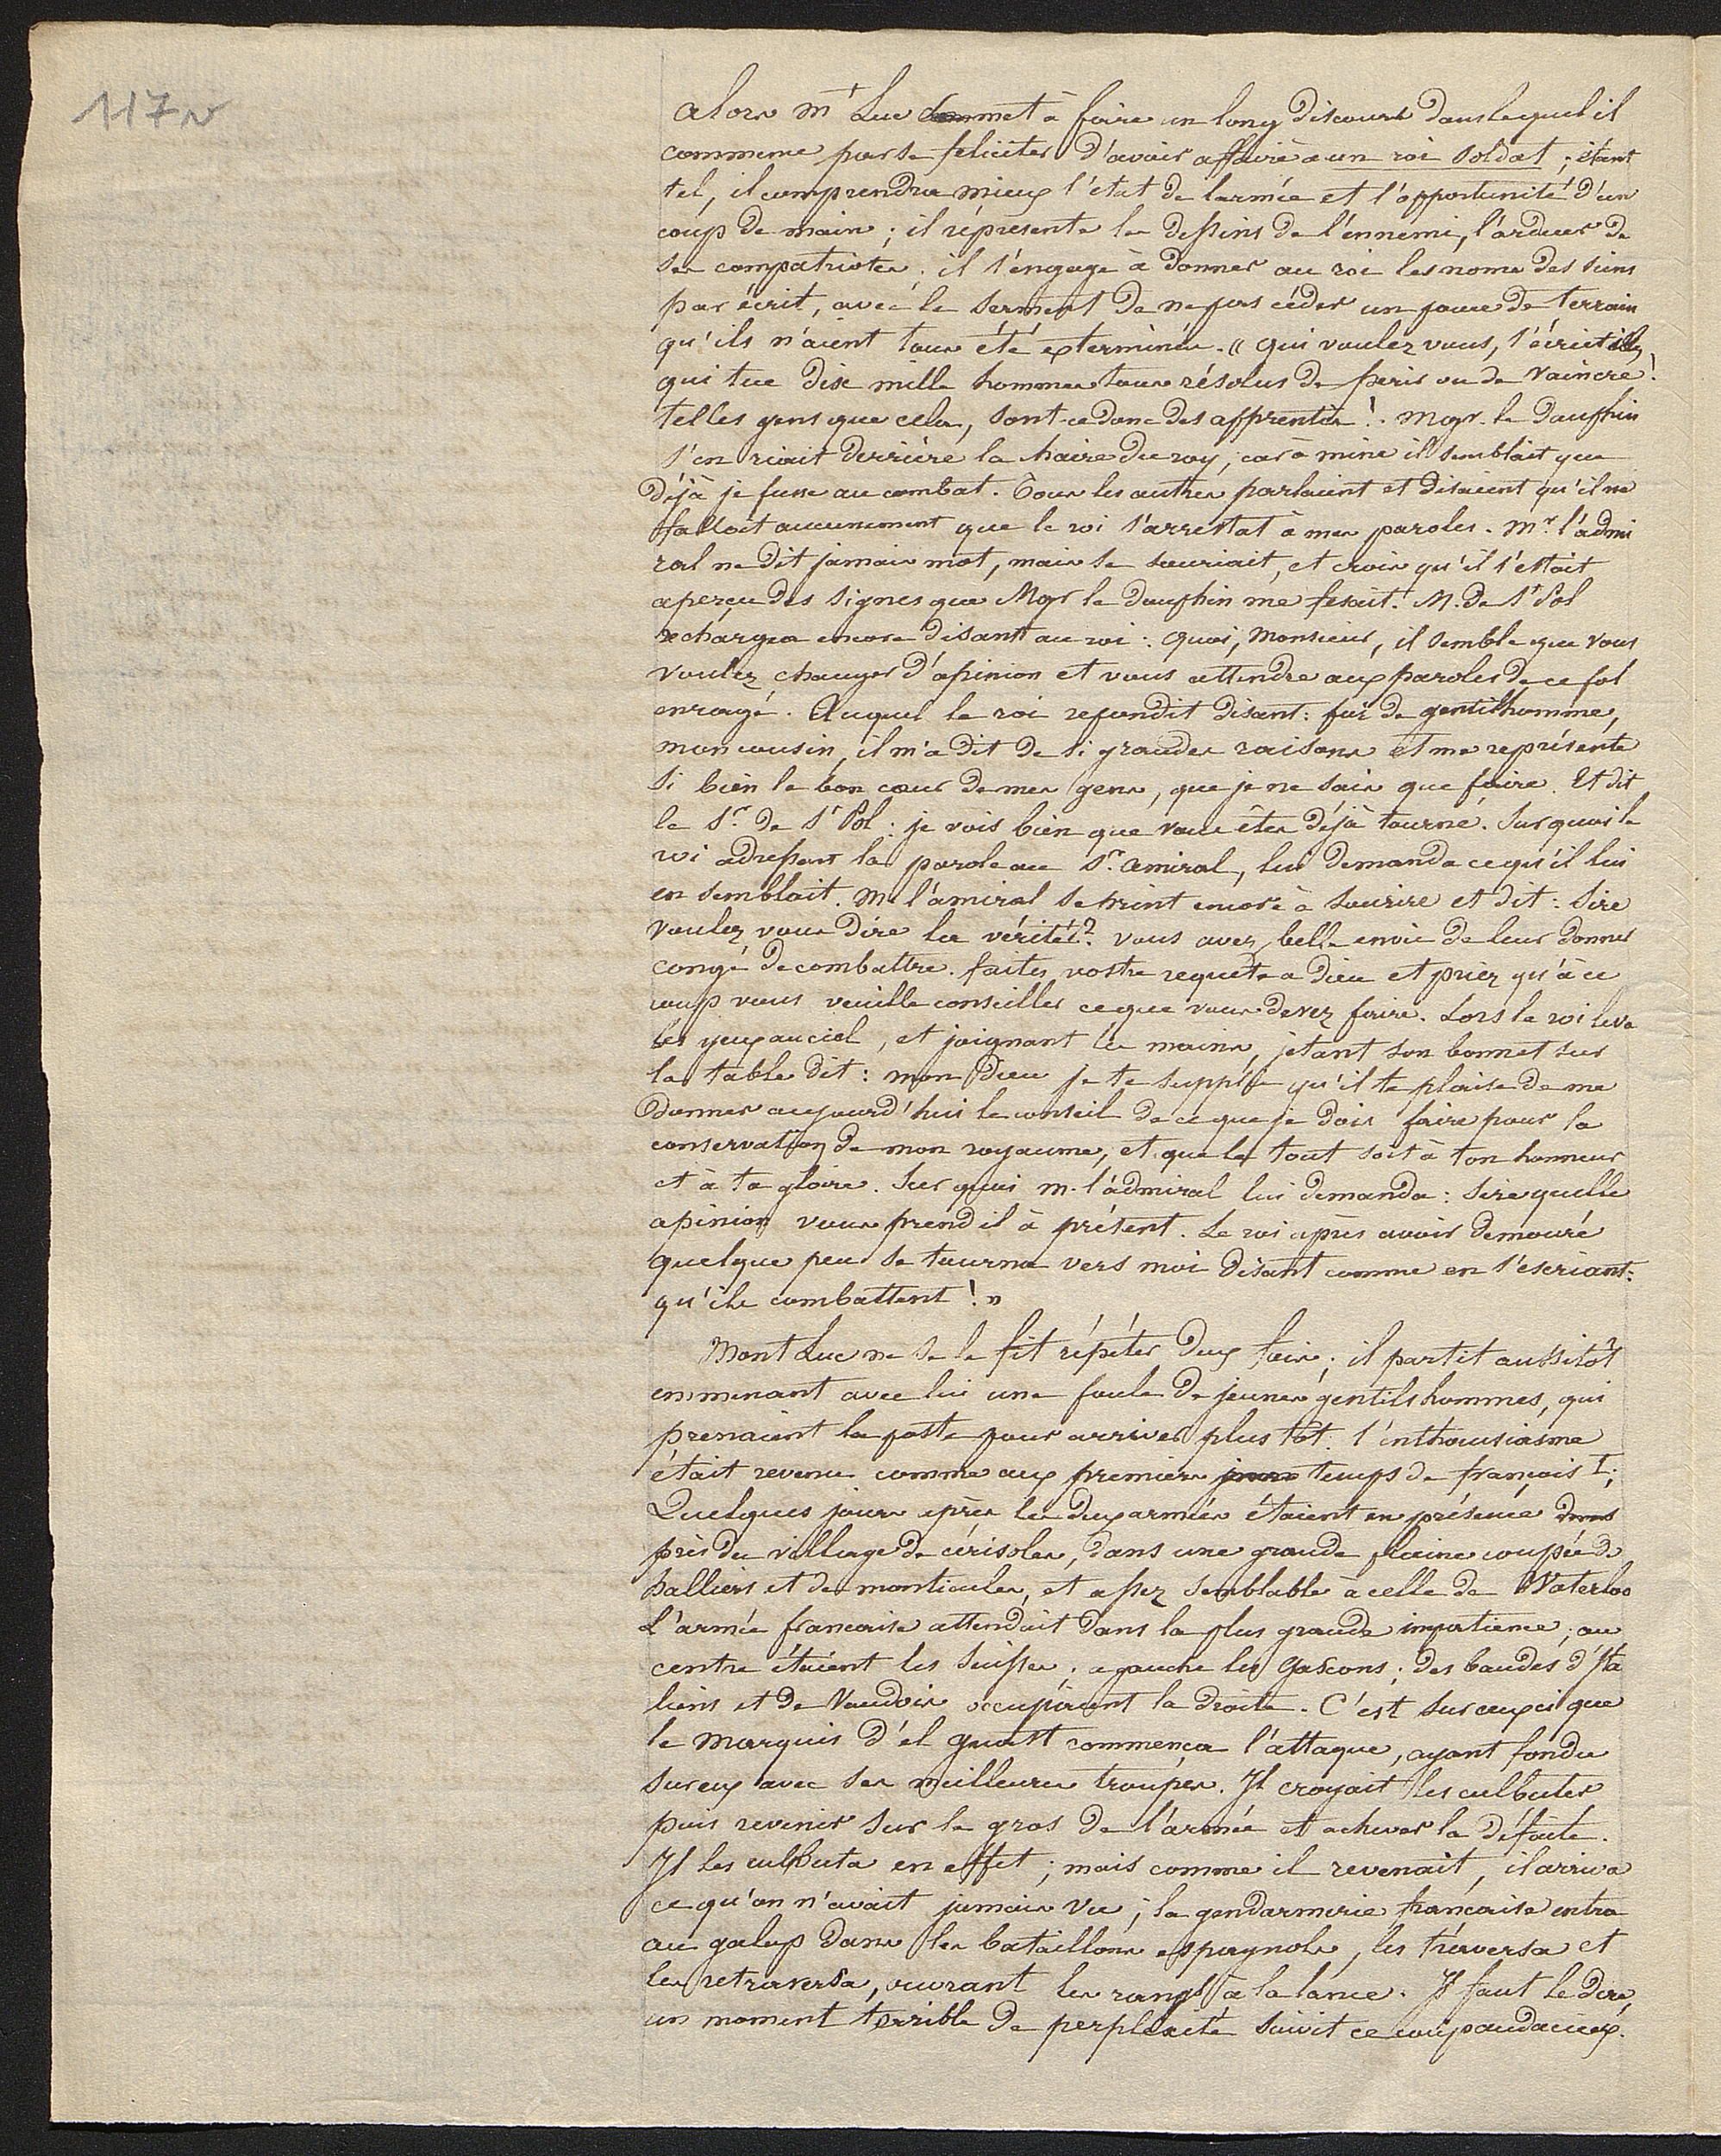 117v
alors mt Luc se met à faire un long discours dans lequel il
commence par se feliciter d'avoir affaire a un roi soldat ; étant
tel, il comprendra mieux l'état de larmée et l'opportunité d'un
coup de main ; il répresente les dessins de l'énnemi, l'ardeur de
ses compatriotes. il s'engage à donner au roi les noms des siens
par écrit, avec le serment de ne pas céder un pouce de terrain
qu'ils n'aient tous été exterminés. « qui voulez vous, s'écriet il,
qui tue dix mille hommes tous résolus de perir ou de vaincre !
telles gens que cela, sont-ce donc des apprentis ! . Mgr. le Dauphin
s'en riait derrière la chaire du roy, car à mine il semblait que
déjà je fusse au combat. Tous les autres parlaient et disaient qu'il ne
falloit aucunement que le roi s'arrestat à mes paroles. Mr. l'admi
ral ne dit jamais mot, mais se souriait, et crois qu'il s'estait
aperçu des signes que Mgr le dauphin me fesait. M. de St Pol
rechargea encore disant au roi : quoi, Monsieur, il semble que vous
voulez changer d'opinion et vous attendre aux paroles de ce fol
enragé. Auquel le roi repondit disant : foi de gentilhomme,
mon cousin, il m'a dit de si grandes raisons et me représente
si bien le bon cœur de mes gens, que je ne sais que faire. Et dit
le Sr. de St Pol : je vois bien que vous êtes déjà tourné. Sur quoi le
roi adressant la parole au Sr. amiral, lui demanda ce qu'il lui
en semblait. M. l'amiral se print encore à sourire et dit : Sire
voulez vous dire la vérité ? vous avez belle envie de leur donner
congé de combattre. faites vostre requête a Dieu et priez qu'à ce
coup vous veuille conseiller ce que vous devez faire. Lors le roi leva
les yeux au ciel, et joignant les mains, jetant son bonnet sur
la table dit : mon Dieu je te supplie qu'il te plaise de me
donner aujourd'hui le conseil de ce que je dois faire pour la
conservation de mon royaume, et que le tout soit à ton honneur
et à ta gloire. Sur quoi m. l'admiral lui demanda : Sire quelle
opinion vous prend il à présent. Le roi après avoir demouré
quelque peu se tourna vers moi disant comme en s'éscriant :
qu'ils combattent ! »
Mont Luc ne se le fit répéter deux fois ; il partit aussitôt
emmenant avec lui une foule de jeunes gentilshommes, qui
prenaient la poste pour arriver plus tôt. l'enthousiasme
était revenu comme aux premiers jours temps de françois I ;
Quelques jours après les deux armées étaient en présence dans
près du village de cérisoles, dans une grande plaine coupée de
halliers et de monticules, et assez semblable à celle de Waterloo
L'armée francaise attendait dans la plus grande impatience ; au
centre étaient les Suisses ; a gauche les Gascons ; des bandes d'Ita
liens et de Vaudois occupaient la droite. C'est sur ceux ci que
le Marquis d'el guast commença l'attaque, ayant fondu
sur eux avec ses meilleures troupes. Il croyait les culbuter
puis revenir sur le gros de l'armée et achever la défaite.
Il les culbuta en effet ; mais comme il revenait, il arriva
ce qu'on n'avait jamais vu ; la gendarmerie francaise entra
au galop dans les bataillons espagnols, les traversa et
les retraversa, ouvrant les rangs à la lance. Il faut le dire,
un moment terrible de perplexité suivit ce coup audacieux.